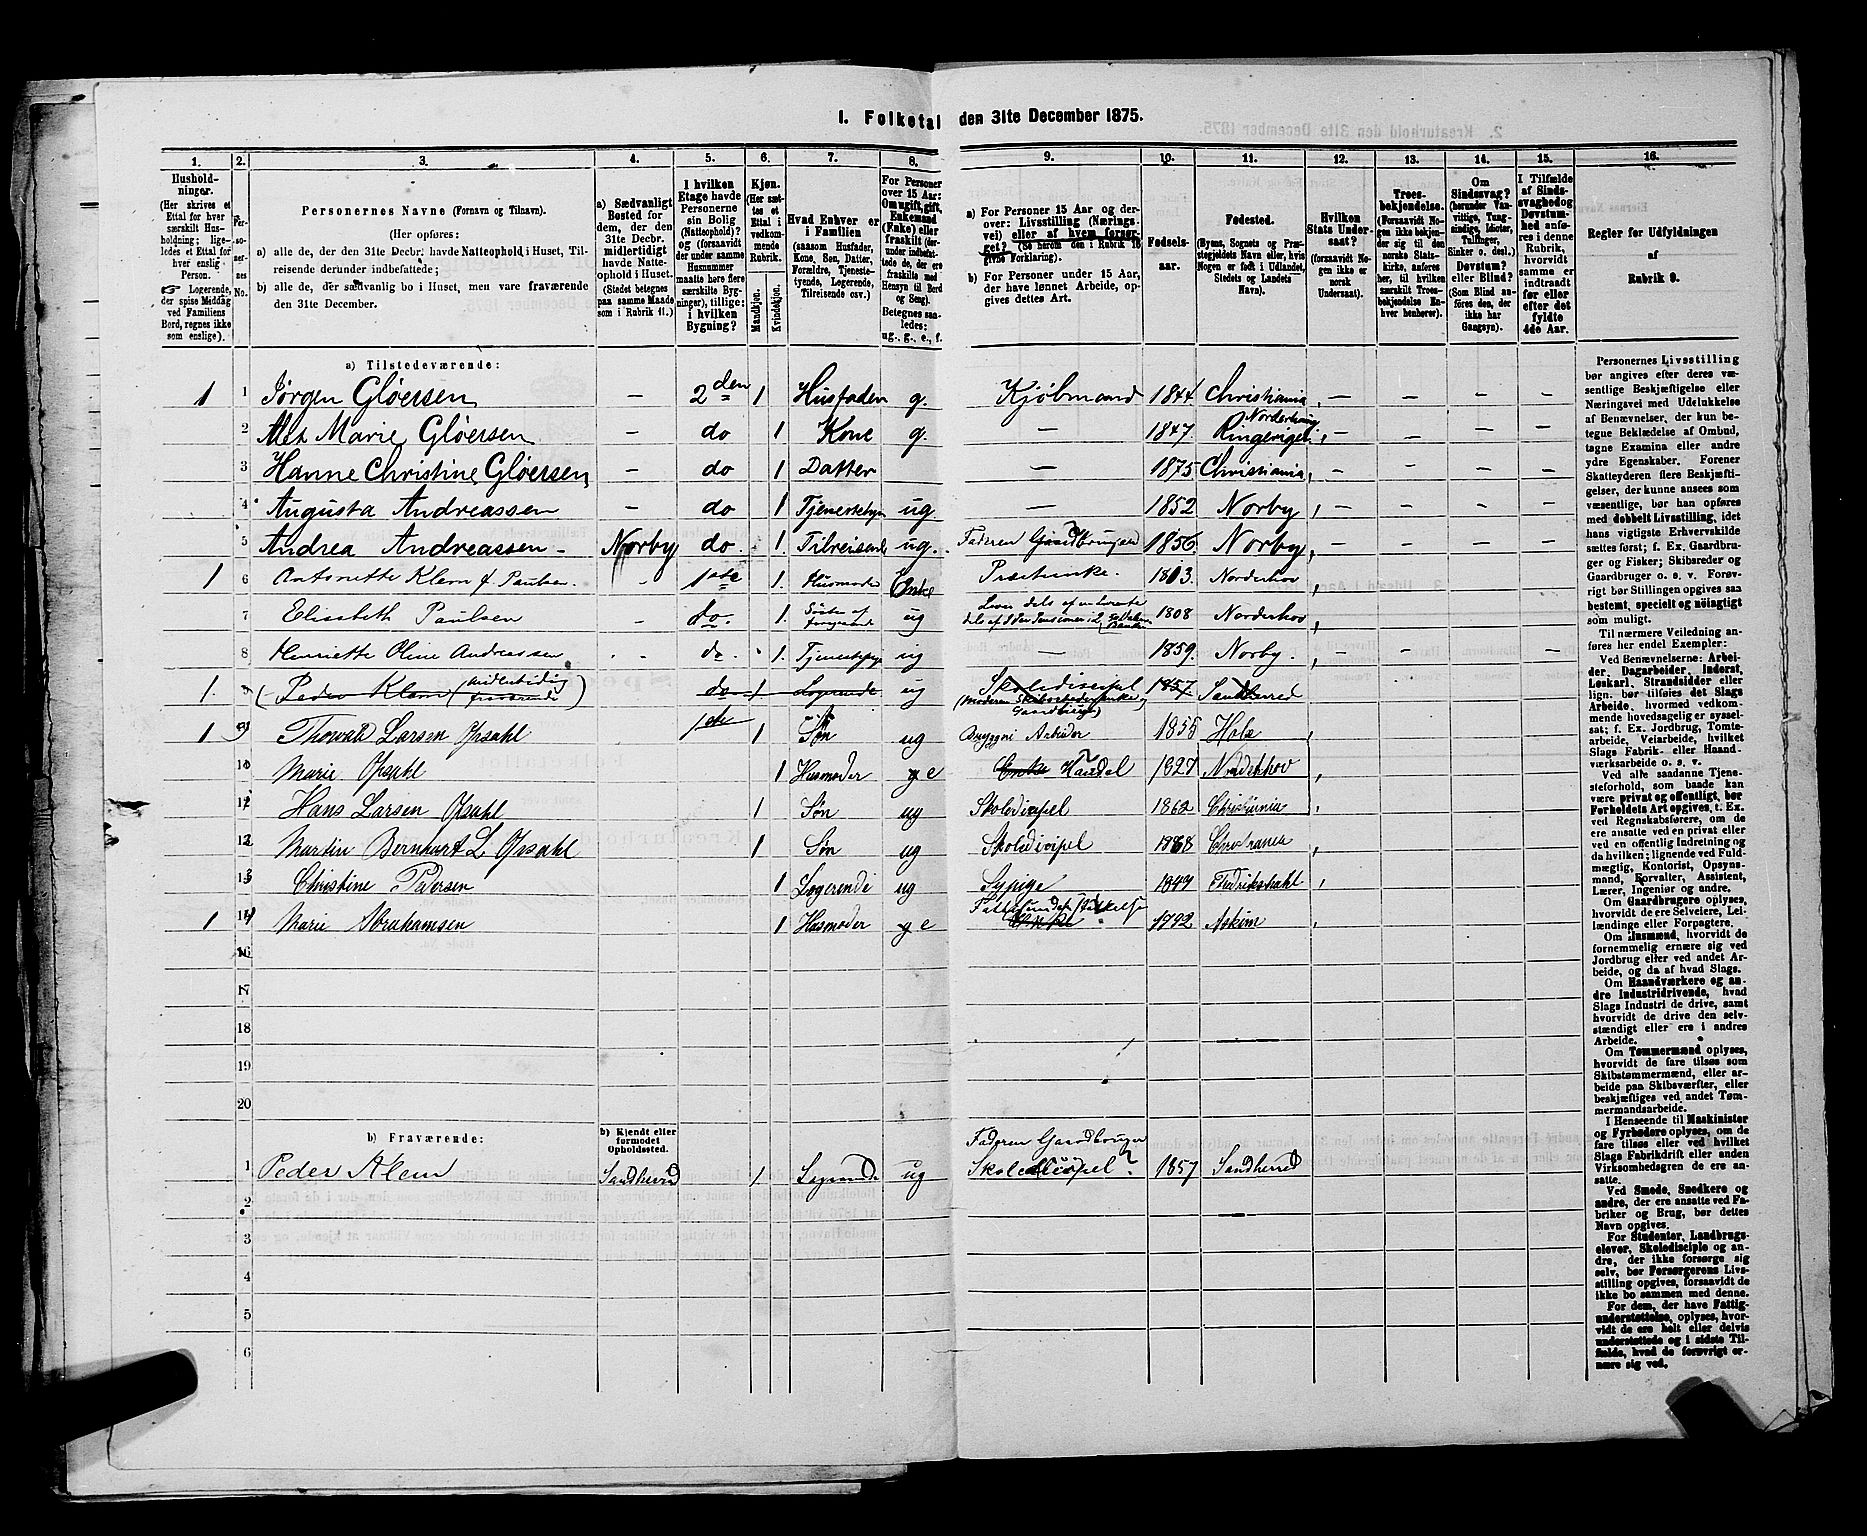 1. Folketal den 31te December 1875.
1. 2. 3. 4. 5. 6. 7. 8. 9. 10. 11. 12. 13. 14. 15. 16.
Hushold-
ninger.
(Her skrives et
Ettal for hver
særskilt Hus-
holdning; lige-
ledes et Ettal for
hver enslig
Person.
☞ Logerende,
der spise Middag
ved Familiens
Bord, regnes ikke
som enslige).
Per-
so-
ner-
nes
No.
Personernes Navne (Fornavn og Tilnavn).
(Her opføres:
a) alle de, der den 31te Decbr. havde Natteophold i Huset, Til-
reisende derunder indbefattede;
b) alle de, der sædvanlig bo i Huset, men vare fraværende
den 31te December.
a) Sædvanligt
Bosted for
dem, der den
31te Decbr.
midlertidigt
havde Natte-
ophold i Huset.
(Stedet betegnes
paa samme Maade
som i Rubrik 11.)
I hvilken
Etage havde
Personerne
sin Bolig
(Natteophold)?
og (forsaavidt
der under samme
Husnummer
maatte høre flere
særskilte Byg-
ninger), tillige:
i hvilken
Bygning?
Kjøn.
(Her sæt-
tes et
Ettal i
vedkom-
mende
Rubrik.
Mandkjøn.
Kvindekjøn.
Hvad Enhver er
i Familien
(saasom Husfader,
Kone, Søn, Datter,
Forældre, Tjeneste-
tyende, Logerende,
Tilreisende osv.)
For Personer
over 15 Aar:
Om ugift, gift,
Enkemand
(Enke) eller
fraskilt (der-
under indbefat-
tede de, der ere
fraskilte med
Hensyn til Bord
og Seng).
Betegnes saa-
ledes:
ug., g., e., f.
a) For Personer 15 Aar og der-
over: Livsstilling (Nærings-
vei) eller af hvem forsør-
get? (Se herom den i Rubrik 16
givne Forklaring).
b) For Personer under 15 Aar,
der have lønnet Arbeide, op-
gives dettes Art.
Fødsels-
aar.
Fødested.
(Byens, Sognets og Præ-
stegjeldets Navn eller, hvis
Nogen er født i Udlandet,
Stedets og Landets
Navn).
Hvilken
Stats Under-
saat?
(forsaavidt No-
gen ikke er
norsk
Undersaat).
Troes-
bekjendelse.
(Forsaavidt No-
gen ikke bekjen-
der sig til den
norske Stats-
kirke, anføres
her, til hvilken
særskilt Troes-
bekjendelse En-
hver henhører).
Om
Sindssvag?
(herunder Van-
vittige, Tung-
sindige, Idioter,
Tullinger,
Sinker o. desl.)
Døvstum?
eller Blind?
(Som Blind an-
føres den, der
ikke har
Gangsyn).
I Tilfælde
af Sinds-
svaghed og
Døvstum-
hed anfø-
res i denne
Rubrik,
hvorvidt
samme er
indtraadt
før eller
efter det
fyldte
4de Aar.
Regler for Udfyldningen
af
Rubrik 9.
a) Tilstedeværende:
1 1 Jørgen Gløersen — 2den 1 Husfader g. Kjøbmand 1844 Christiania, — — — —
2 Alet Marie Gløersen — do 1 Kone g. — 1847. Norderhoug Ringerige, — — — —
3 Hanne Christine Gløersen, — do 1 Datter — 1875 Christiania, — — — —
4 Augusta Andreassen — do 1 Tjenestepige ug. — 1852 Norby, — — — —
5 Andrea Andreassen — Norby do 1 Tilreisende ug. Faderen Gaardbruger 1856. Norby, — — — —
1 6 Antonette Klem f. Paulsen. — 1ste 1. Husmoder Enke Præsteenke. 1813. Norderhov,
7 Elisabeth Paulsen — do. 1. Søster af foregaaende ug 1808 Norderhov,
8 Henriette Oline Andreassen — do. 1. Tjenestepige ug — 1859. Norby. — — — —
1. 9 (Peder Klem (midlertidig fraværende) do 1 Logerende ug Skoledisipel 1857 Sandherred
1 Thorvald Larsen Opsahl 1ste 1 Søn ug Bryggeri Arbeider 1855 Hole,
Marie Opsahl 1 Husmoder e Enke Handel 1827 Norderhov,
Hans Larsen Opsahl 1 Søn ug Skoledisipel 1862 Christiania,
Martin Bernhart L. Opsahl 1 Søn ug Skoledisipel 1868 Christiania,
Christine Pedersen 1 Logerende ug Sypige 1849 Fredrikshald,
1 Marie Abrahamsen 1 Husmoder e Enke 1792 Askim,
16
17
18
19
20
b) Fraværende:
b) Kjendt eller
formodet
Opholdssted.
Faderen Gaardbruger
1 Peder Klem Sandherred 1 Logerende ug Skoledisipel? 1857 Sandherred
2
3
4
5
6
Personernes Livsstilling
bør angives efter deres væ-
sentlige Beskjæftigelse eller
Næringsvei med Udelukkelse
af Benævnelser, der kun be-
tegne Beklædelse af Ombud,
tagne Examina eller andre
ydre Egenskaber. Forener
Skatteyderen flere Beskjæfti-
gelser, der kunne ansees som
væsentlige, bør han opføres
med dobbelt Livsstilling, idet
hans vigtigste Erhvervskilde
sættes først; f. Ex. Gaardbru-
ger og Fisker; Skibsreder og
Gaardbruger o. s. v. Forøv-
rigt bør Stillingen opgives saa
bestemt, specielt og nøiagtigt
som muligt.
Til nærmere Veiledning an-
føres her endel Exempler:
Ved Benævnelserne: Arbei-
der, Dagarbeider, Inderst,
Løskarl, Strandsidder eller
lign. bør tilføies det Slags
Arbeide, hvormed vedkom-
mende hovedsagelig er syssel-
sat; f. Ex. Jordbrug, Tomte-
arbeide, Veiarbeide, hvilket
Slags Fabrik- eller Haand-
værksarbeide o. s. v.
Ved alle saadanne Tjene-
steforhold, som baade kan
være privat og offentligt, bør
Forholdets Art opgives, t. Ex.
ved Regnskabsførere, om de
ere ansatte ved en privat eller
ved en offentlig Indretning og
da hvilken; lignende ved Fuld-
mægtig, Kontorist, Opsyns-
mand, Forvalter, Assistent,
Lærer, Ingeniør og andre.
Om Gaardbrugere oplyses,
hvorvidt de ere Selveiere, Lei-
lændinge eller Forpagtere.
Om Husmænd, hvorvidt de
fornemmelig ernære sig ved
Jordbrug eller ved andet Ar-
beide, og da af hvad Slags.
Om Haandværkere og an-
dre Industridrivende, hvad
Slags Industri de drive, samt
hvorvidt de drive den selv-
stændigt eller ere i andres
Arbeide.
Om Tømmermænd oplyses,
hvorvidt de fare tilsøs som
Skibstømmermænd, eller ar-
beide paa Skibsværfter, eller
beskjæftiges ved andet Tøm-
mermandsarbeide.
I Henseende til Maskinister
og Fyrbødere oplyses, om de
fare tilsøs eller ved hvilket
Slags Fabrikdrift eller anden
Virksomhedsgren de ere an-
satte.
Ved Smede, Snedkere og
andre, der ere ansatte ved Fa-
briker og Brug, bør dettes
Navn opgives.
For Studenter, Landbrugs-
elever, Skoledisciple og an-
dre, der ikke forsørge sig
selv, bør Forsørgerens Livs-
stilling opgives, forsaavidt de
ikke bo sammen med denne.
For dem, der have Fattig-
understøttelse, oplyses, hvor-
vidt de ere helt eller delvis
understøttede og i sidste Til-
fælde, hvad de forøvrigt er-
nære sig ved.